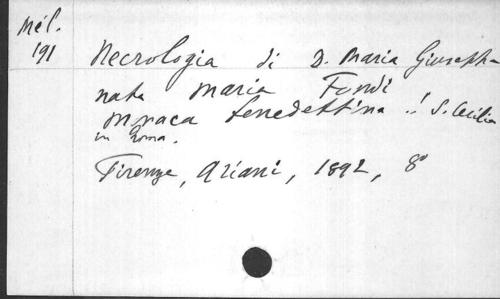 Mél.
191
Necrologia di D. Maria Giuseph-
nata Maria Fondi
Monaca benedettina .! S. Cecilia
in Roma.
Firenze, Ariani, 1892, 8°